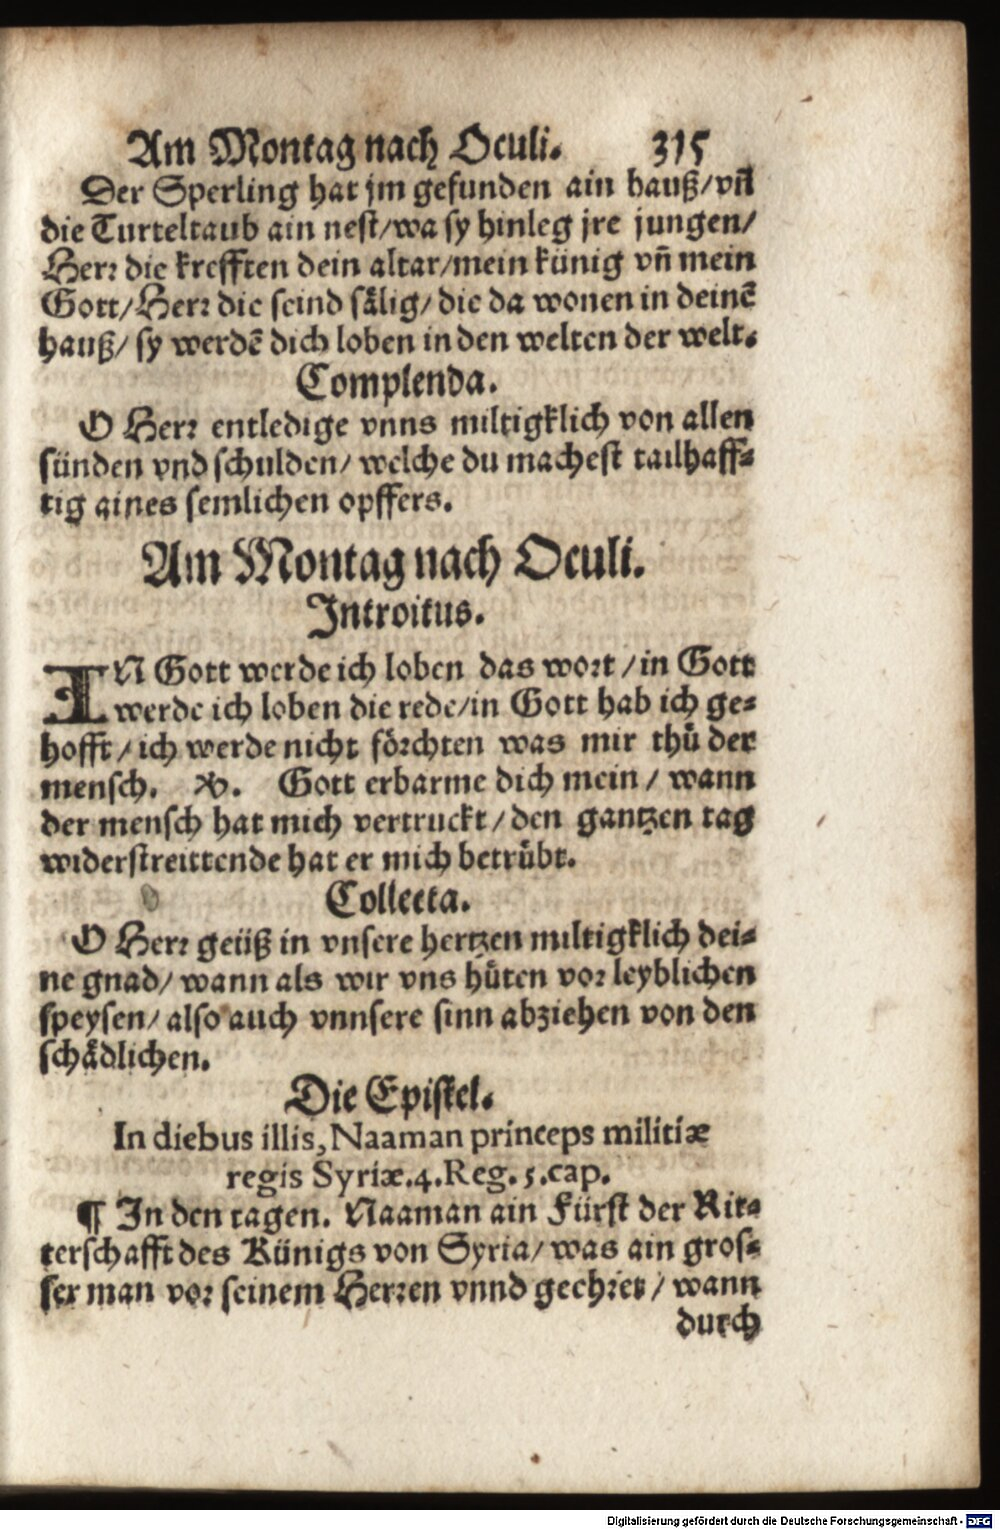 Am Montag nach Oculi. 315
Der Sperling hat jm gefunden ain hauß/vñ
die Turteltaub ain nest/wa sy hinleg jre jungen/
Herr die krefften dein altar/mein künig vñ mein
Gott/Herr die seind sålig/die da wonen in deinẽ
hauß/sy werdẽ dich loben in den welten der welt.
Complenda.
O Herr entledige vnns miltigklich von allen
sünden vnd schulden/welche du machest tailhaff⸗
tig aines semlichen opffers.
Am Montag nach Oculi.
Introitus.
IN Gott werde ich loben das wort/in Gott
werde ich loben die rede/in Gott hab ich ge⸗
hofft/ich werde nicht förchten was mir thů der
mensch. ℣. Gott erbarme dich mein/wann
der mensch hat mich vertruckt/den gantzen tag
widerstreittende hat er mich betrübt.
Collecta.
O Herr geüß in vnsere hertzen miltigklich dei⸗
ne gnad/wann als wir vns hüten vor leyblichen
speysen/also auch vnnsere sinn abziehen von den
schådlichen.
Die Epistel.
In diebus illis, Naaman princeps militiæ
regis Syriæ. 4. Reg. 5. cap.
¶ In den tagen. Naaman ain Fürst der Rit⸗
terschafft des Künigs von Syria/was ain gros⸗
ser man vor seinem Herren vnnd geehret/wann
durch
Digitalisierung gefördert durch die Deutsche Forschungsgemeinschaft - DFG